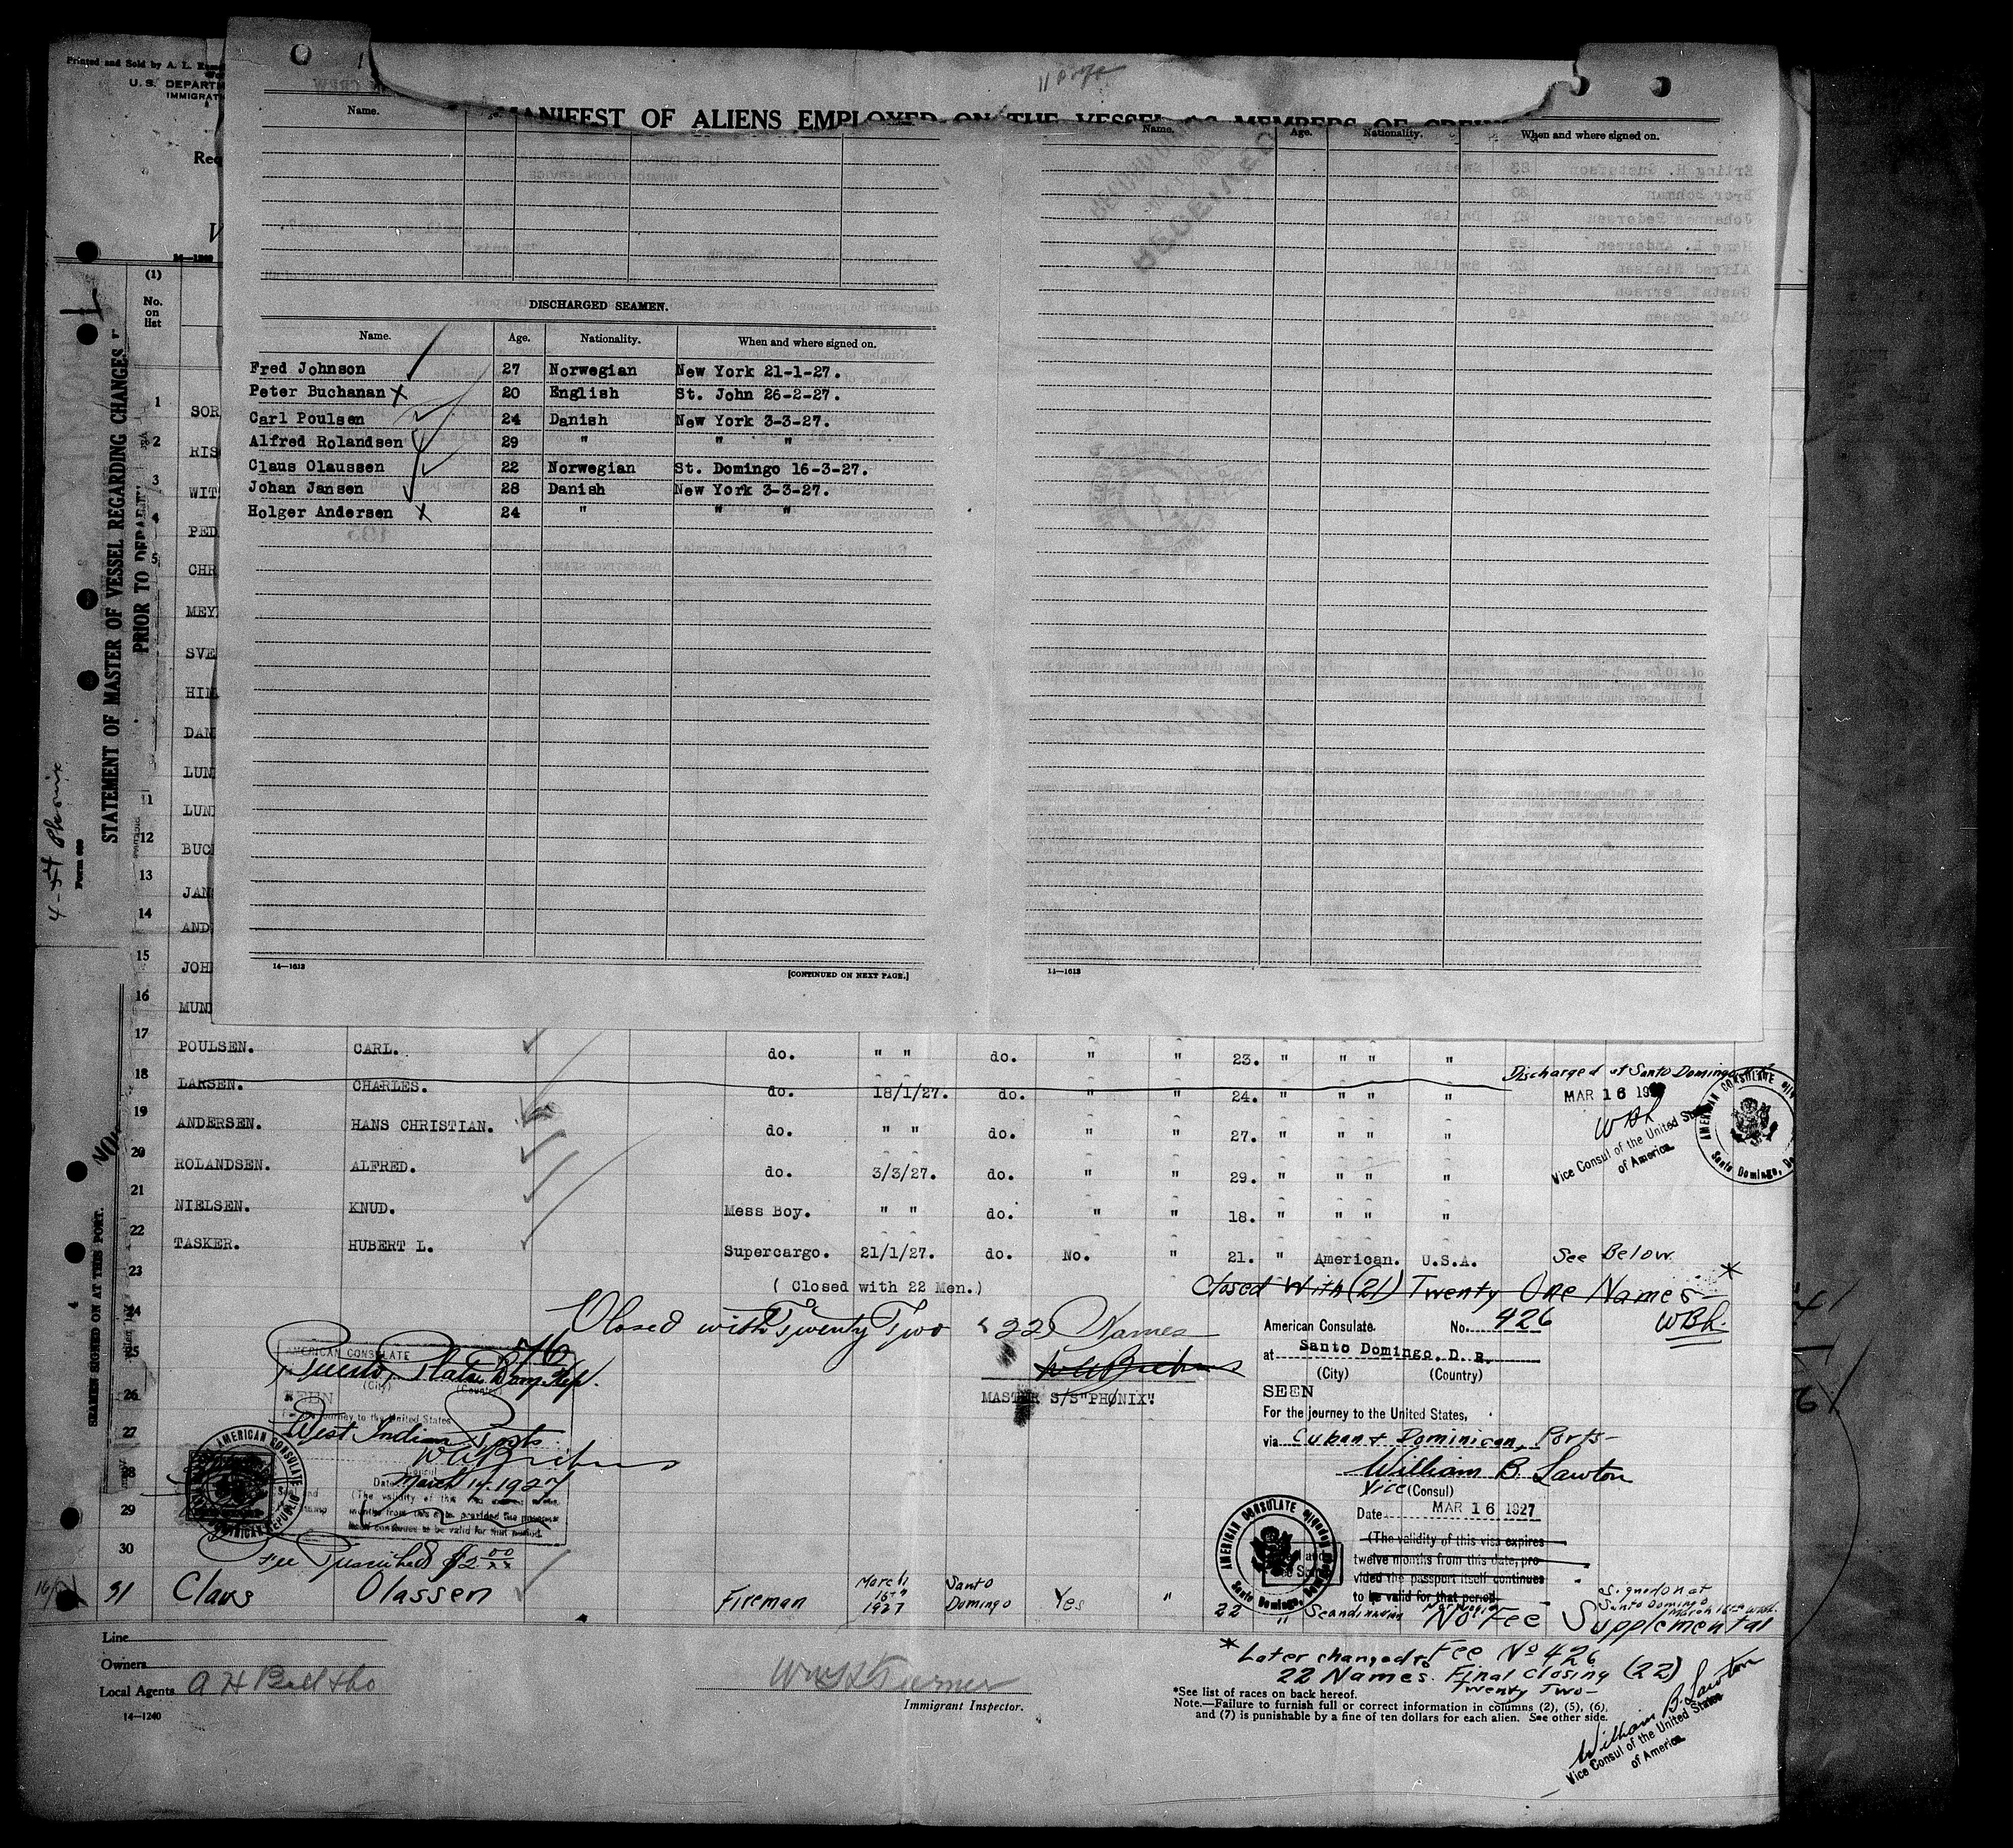 Printed and Sold by A. L.
U. S. DEPARTM
IMMIGRAT
Req
V
14—1240
11 page
MANIFEST OF ALIENS EMPLOYED ON THE VESSEL AS MEMBERS OF CREW
Name.
Name. Age. Nationality. When and where signed on.
DISCHARGED SEAMEN.
Name. Age. Nationality. When and where signed on.
Fred Johnson 27 Norwegian New York 21-1-27.
Peter Buchanan X 20 English St. John 26-2-27.
Carl Poulsen 24 Danish New York 3-3-27.
Alfred Rolandsen 29 " " "
Claus Olaussen 22 Norwegian St. Domingo 16-3-27.
Johan Jansen 28 Danish New York 3-3-27.
Holger Andersen X 24 " " "
14—1613
[CONTINUED ON NEXT PAGE.]
14—1613
STATEMENT OF MASTER OF VESSEL REGARDING CHANGES
PRIOR TO DEPARTURE
Form 689
4-
SEAMEN SIGNED ON AT THIS PORT.
No.
(1)
No.
on
list
1 SOR
2 RIS
3 WIT
4 PED
5 CHR
MEY
SVE
HIM
DAN
LUN
11 LUN
12 BUC
13 JAN
14 AND
15 JOH
16 MUN
17 POULSEN. CARL. do. " " do. " " 23. " " " "
18 LARSEN. CHARLES. do. 18/1/27. do. " " 24. " " " "
Discharged at Santo Domingo
MAR 16 19
WBL
Vice Consul of the United States
of America.
AMERICAN CONSULATE
Santo Domingo,
19 ANDERSEN. HANS CHRISTIAN. do. " " do. " " 27. " " " "
20 ROLANDSEN. ALFRED. do. 3/3/27. do. " " 29. " " " "
21 NIELSEN. KNUD. Mess Boy. " " do. " " 18. " " " "
22 TASKER. HUBERT L. Supercargo. 21/1/27. do. No. " 21. " American. U.S.A. See Below
23
( Closed with 22 Men.)
Closed With (21) Twenty One Names *
WBL.
24
Closed with Twenty Two (22) Names
MASTER S/S"PHØNIX".
25
26
27
28
29
30
AMERICAN CONSULATE
576
Puerto Plata, Dom. Rep.
(City) (Country)
SEEN
journey to the United States
West Indian Ports
Consul
Date March 14. 1927
(The validity of this
months from this date, provided the passport
itself continues to be valid for that period.
AMERICAN CONSULATE
DOMINICAN REPUBLIC
Fee Prescribed $2.00
American Consulate. No. 426
at Santo Domingo, D. R.
(City) (Country)
SEEN
For the journey to the United States,
via Cuban & Dominican, Ports
William B. Lawton
Vice (Consul)
Date MAR 16 1927
(The validity of this visa expires
twelve months from this date, pro-
vided the passport itself continues
to be valid for that period.
AMERICAN CONSULATE
Santo Domingo,
31 Claus Olassen Fireman March 16th 1927 Santo Domingo Yes " 22 " Scandinavian Norwegian
No Fee
Signed on at
Santo Domingo
March 16th WBL.
Supplemental
Line
Owners
Local Agents A H Bull & Co
14—1240
Wm H Turner
Immigrant Inspector.
* Later changed to Fee No 426
22 Names. Final Closing (22)
Twenty Two
*See list of races on back hereof.
Note.—Failure to furnish full or correct information in columns (2), (5), (6),
and (7) is punishable by a fine of ten dollars for each alien. See other side.
William B. Lawton
Vice Consul of the United States
of America.